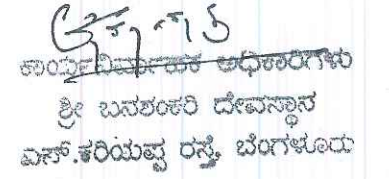 ಕಾರ್ಯನಿರ್ವಾಹಕ ಅಧಿಕಾರಿಗಳು
ಶ್ರೀ ಬನಶಂಕರಿ ದೇವಸ್ಥಾನ
ಎಸ್.ಕರಿಯಪ್ಪ ರಸ್ತೆ, ಬೆಂಗಳೂರು